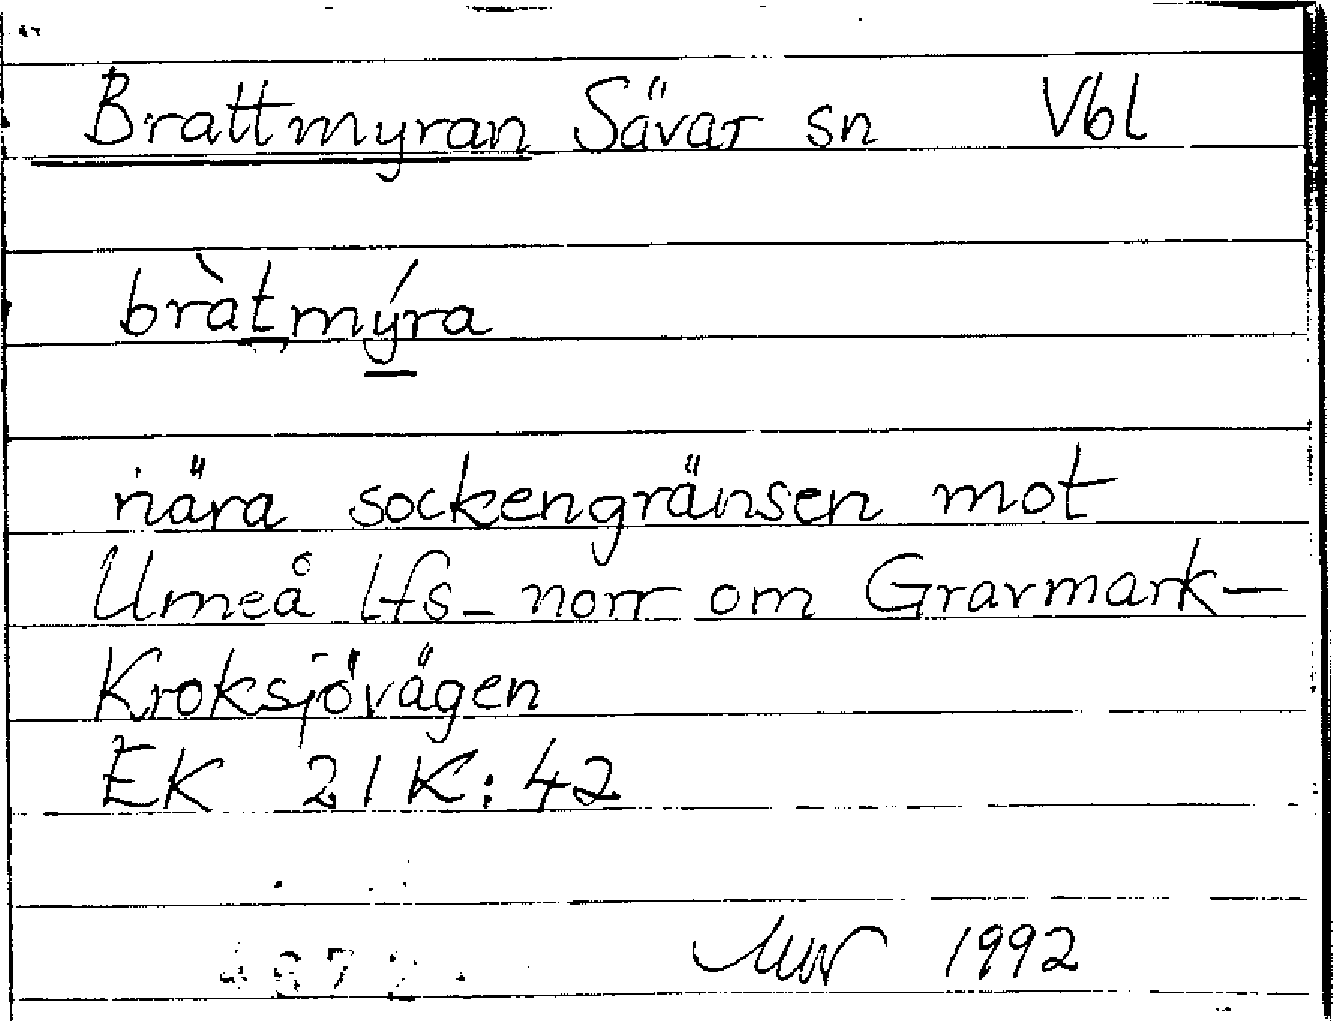 Brattmyran Sävar sn Vbl
bràtmýra
nära sockengränsen mot
Umeå lfs - norr om Gravmark-
Kroksjövägen
EK 21K:42
1992